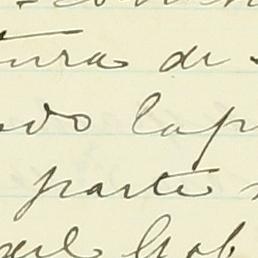 tura de
do la p
parte
del Gob